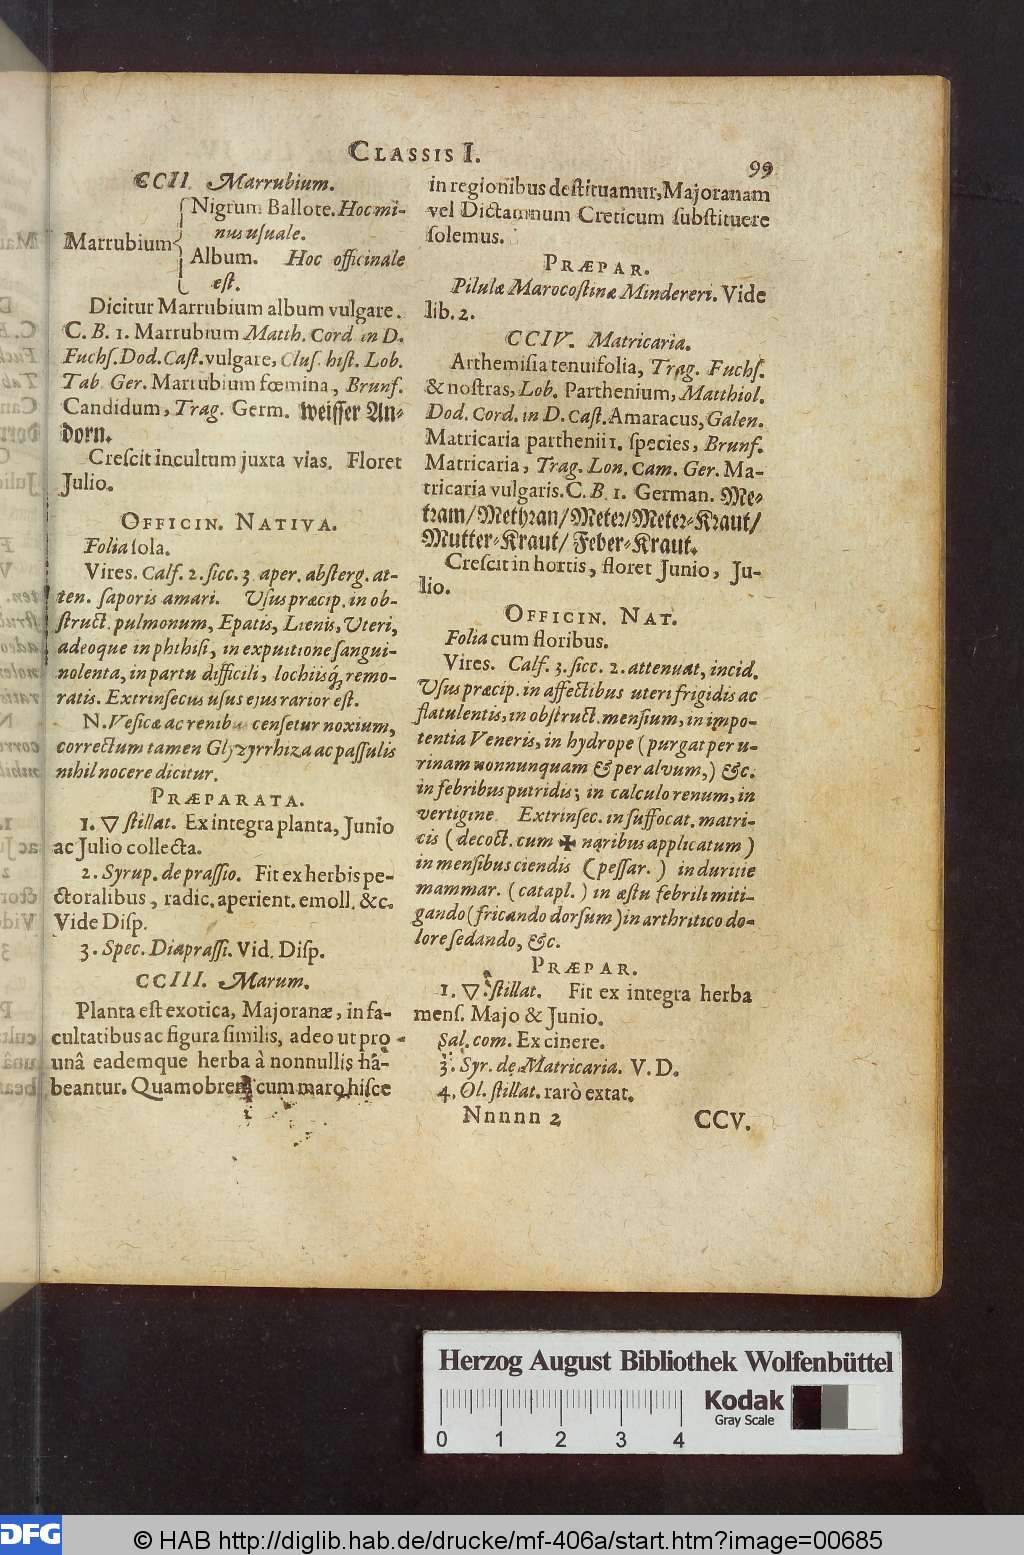 CLASSIS I.
99
CCII. Marrubium.
Marrubium
Nigrum Ballote. Hoc mi-
nus usuale.
Album. Hoc officinale
est.
Dicitur Marrubium album vulgare.
C. B. 1. Marrubium Matth. Cord in D.
Fuchſ. Dod. Caſt. vulgare, Cluſ. hiſt. Lob.
Tab. Ger. Marrubium fœmina, Brunf.
Candidum, Trag. Germ. weiſſer An-
dorn.
Creſcit incultum juxta vias. Floret
Julio.
OFFICIN. NATIVA.
Folia ſola.
Vires. Calf. 2. ſicc. 3 aper. abſterg. at-
ten. ſaporis amari. Uſus præcip. in ob-
ſtruct. pulmonum, Epatis, Lienis, Uteri,
adeoque in phthiſi, in expuitione ſangui-
nolenta, in partu difficili, lochiisq́; remo-
ratis. Extrinſecus uſus ejus rarior eſt.
N. Veſicæ ac renibus cenſetur noxium,
correctum tamen Glyzyrrhiza ac paſſulis
nihil nocere dicitur.
PRÆPARATA.
1. ▽ ſtillat. Ex integra planta, Junio
ac Julio collecta.
2. Syrup. de praſſio. Fit ex herbis pe-
ctoralibus, radic. aperient. emoll. &c.
Vide Diſp.
3. Spec. Diapraſſi. Vid. Diſp.
CCIII. Marum.
Planta eſt exotica, Majoranæ, in fa-
cultatibus ac figura ſimilis, adeo ut pro-
unâ eademque herba à nonnullis ha-
beantur. Quamobrem cum maro hiſce
in regionibus deſtituamur, Majoranam
vel Dictamnum Creticum ſubſtituere
ſolemus.
PRÆPAR.
Pilulæ Marocoſtinæ Mindereri. Vide
lib. 2.
CCIV. Matricaria.
Arthemiſia tenuifolia, Trag. Fuchſ.
& noſtras, Lob. Parthenium, Matthiol.
Dod. Cord. in D. Caſt. Amaracus, Galen.
Matricaria parthenii 1. ſpecies, Brunf.
Matricaria, Trag. Lon. Cam. Ger. Ma-
tricaria vulgaris. C. B. 1. German. Me-
tram/ Methran/ Meter/ Meter-Kraut/
Mutter-Kraut/ Feber-Kraut.
Creſcit in hortis, floret Junio, Ju-
lio.
OFFICIN. NAT.
Folia cum floribus.
Vires. Calf. 3. ſicc. 2. attenuat, incid.
Uſus præcip. in affectibus uteri frigidis ac
flatulentis, in obſtruct. menſium, in impo-
tentia Veneris, in hydrope (purgat per u-
rinam nonnunquam & per alvum,) &c.
in febribus putridis; in calculo renum, in
vertigine. Extrinſec. in ſuffocat. matri-
cis (decoct. cum ✠ naribus applicatum)
in menſibus ciendis (peſſar.) in duritie
mammar. (catapl.) in æſtu febrili miti-
gando (fricando dorſum) in arthritico do-
lore ſedando, &c.
PRÆPAR.
1. ▽. ſtillat. Fit ex integra herba
menſ. Majo & Junio.
Sal. com. Ex cinere.
3. Syr. de Matricaria. V. D.
4. Ol. ſtillat. rarò extat.
Nnnnn 2
CCV.
Herzog August Bibliothek Wolfenbüttel
Kodak
Gray Scale
0 1 2 3 4
DFG
© HAB http://diglib.hab.de/drucke/mf-406a/start.htm?image=00685